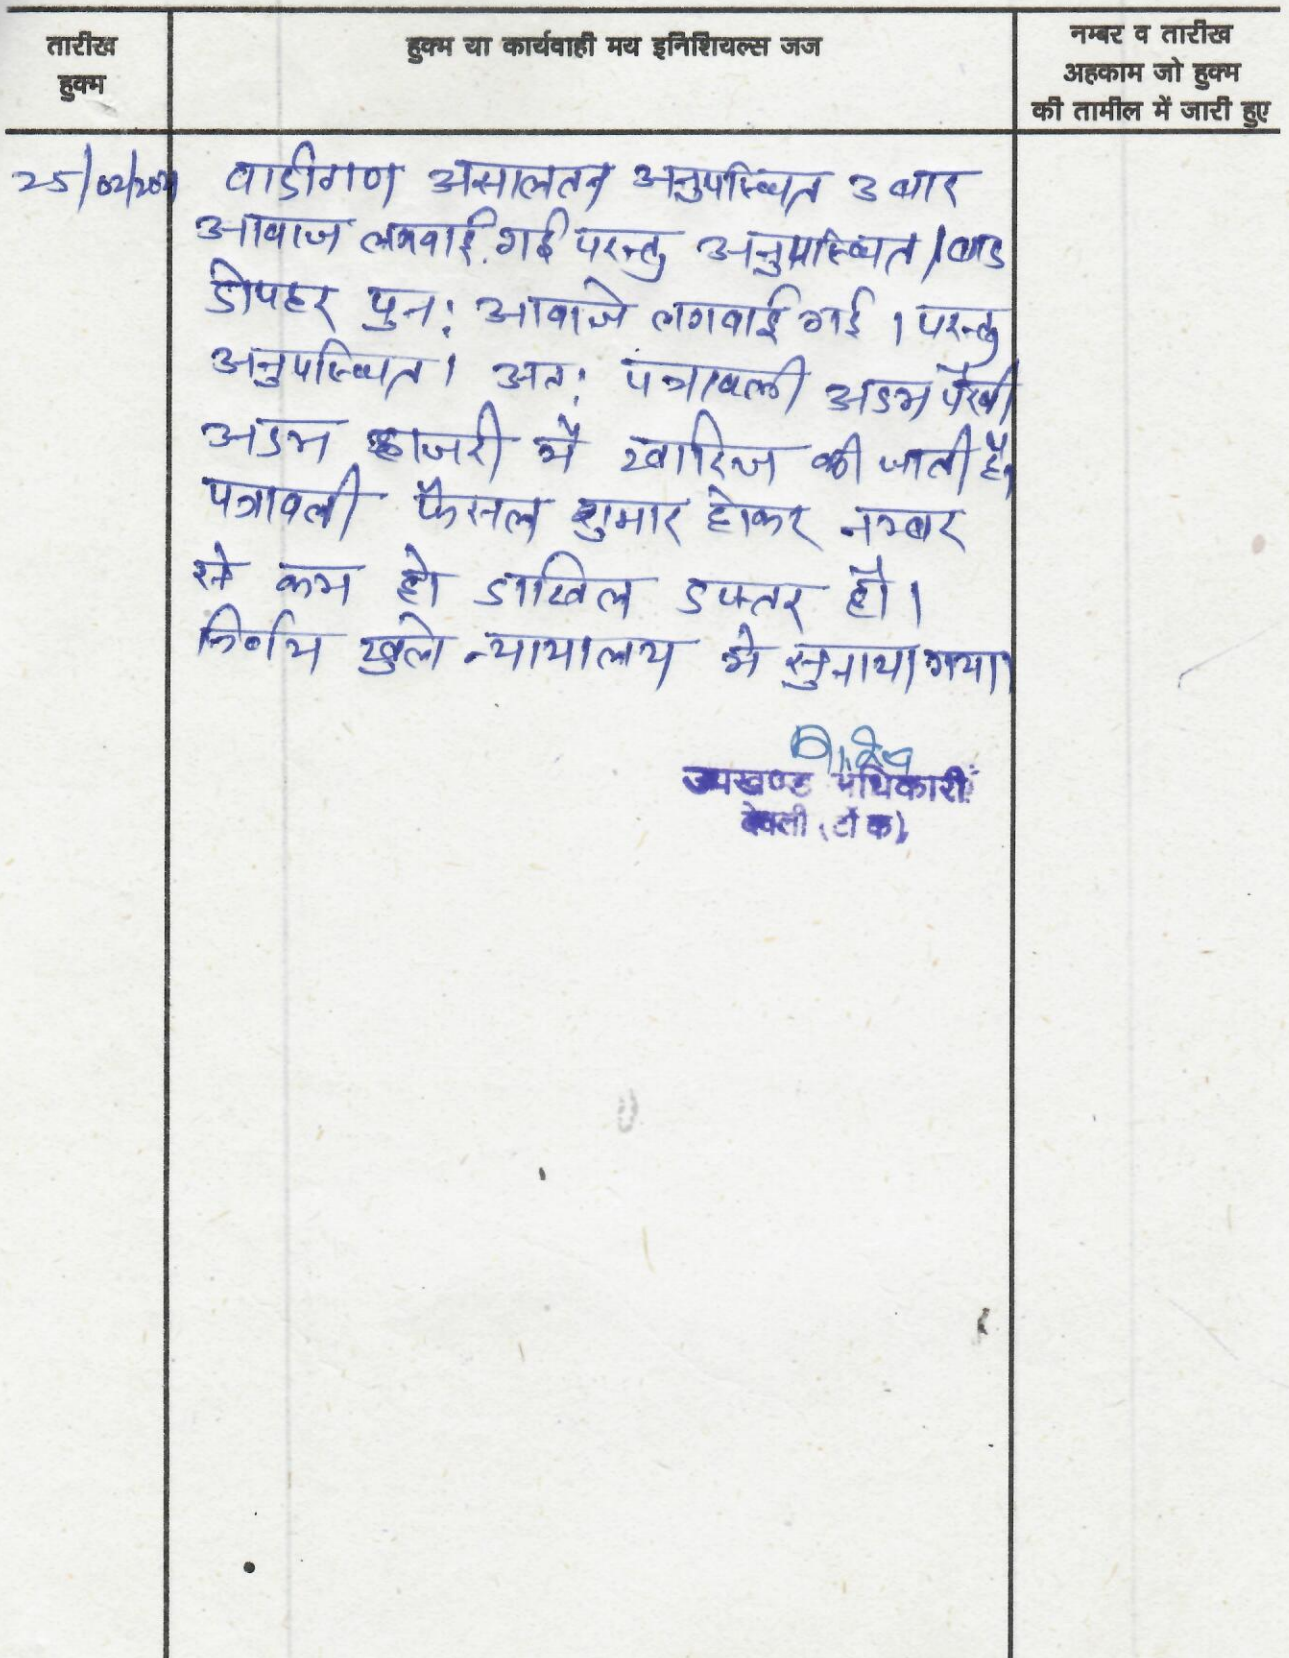 तारीख
हुक्म
हुक्म या कार्यवाही मय इनिशियल्स जज
नम्बर व तारीख
अहकाम जो हुक्म
की तामील में जारी हुए
25/02/2021 वादीगण असालतन अनुपस्थित 3 बार
आवाज लगवाई गई परन्तु अनुपस्थित। बाद
दोपहर पुन: आवाजे लगवाई गई । परन्तु
अनुपस्थित। अत: पत्रावली अदम पैरवी
अदम हाजरी मे खारिज की जाती है।
पत्रावली फैसल शुमार होकर नम्बर
से कम हो दाखिल दफ्तर हो।
निर्णय खुले न्यायालय मे सुनाया गया।
उपखण्ड अधिकारी
देवली (टोंक)